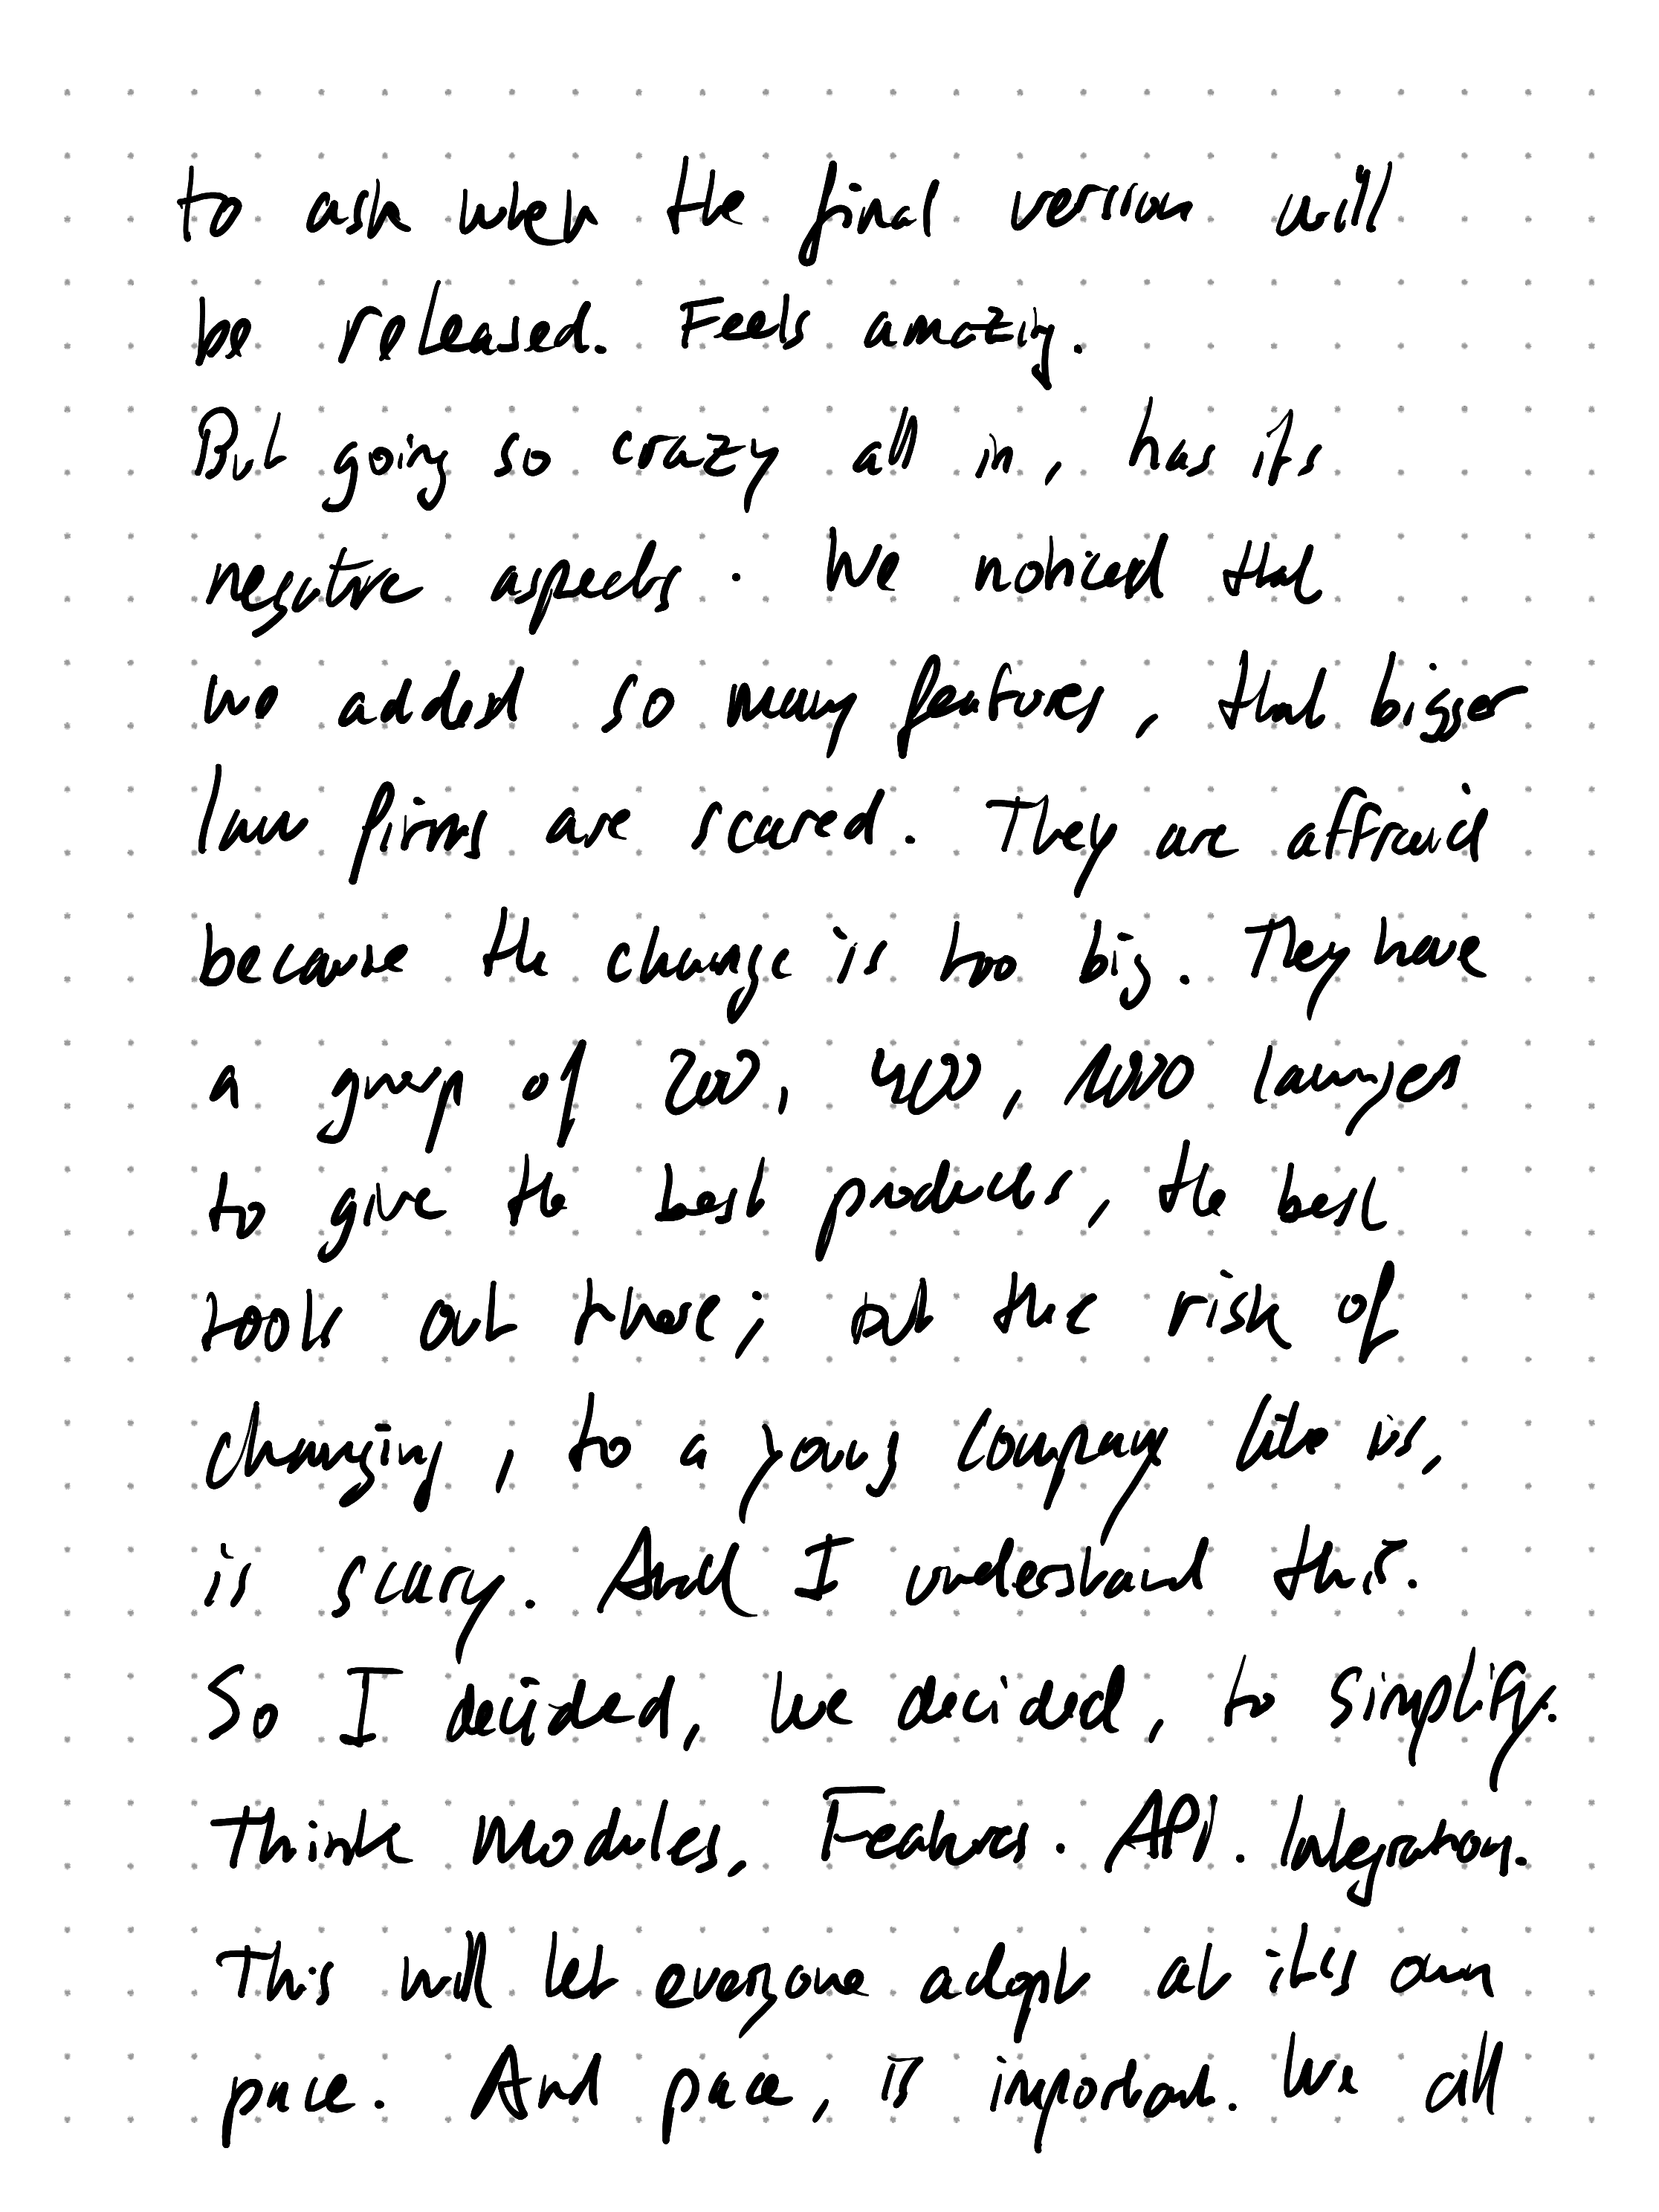 to ask when the final version will
be released. Feels amazing.
But going so crazy all in, has its
negative aspects. We noticed that
we added so many features, that bigger
law firms are scared. They are affraid
because the change is too big. They have
a group of 200, 400, 1000 lawyers
to give the best products, the best
tools out there; but the risk of
changing, to a young company like us,
is scary. And I understand this.
So I decided, we decided, to simplify.
Think Modules. Features. API. Integration.
This will let everyone adopt at it's own
pace. And pace, is important. We all